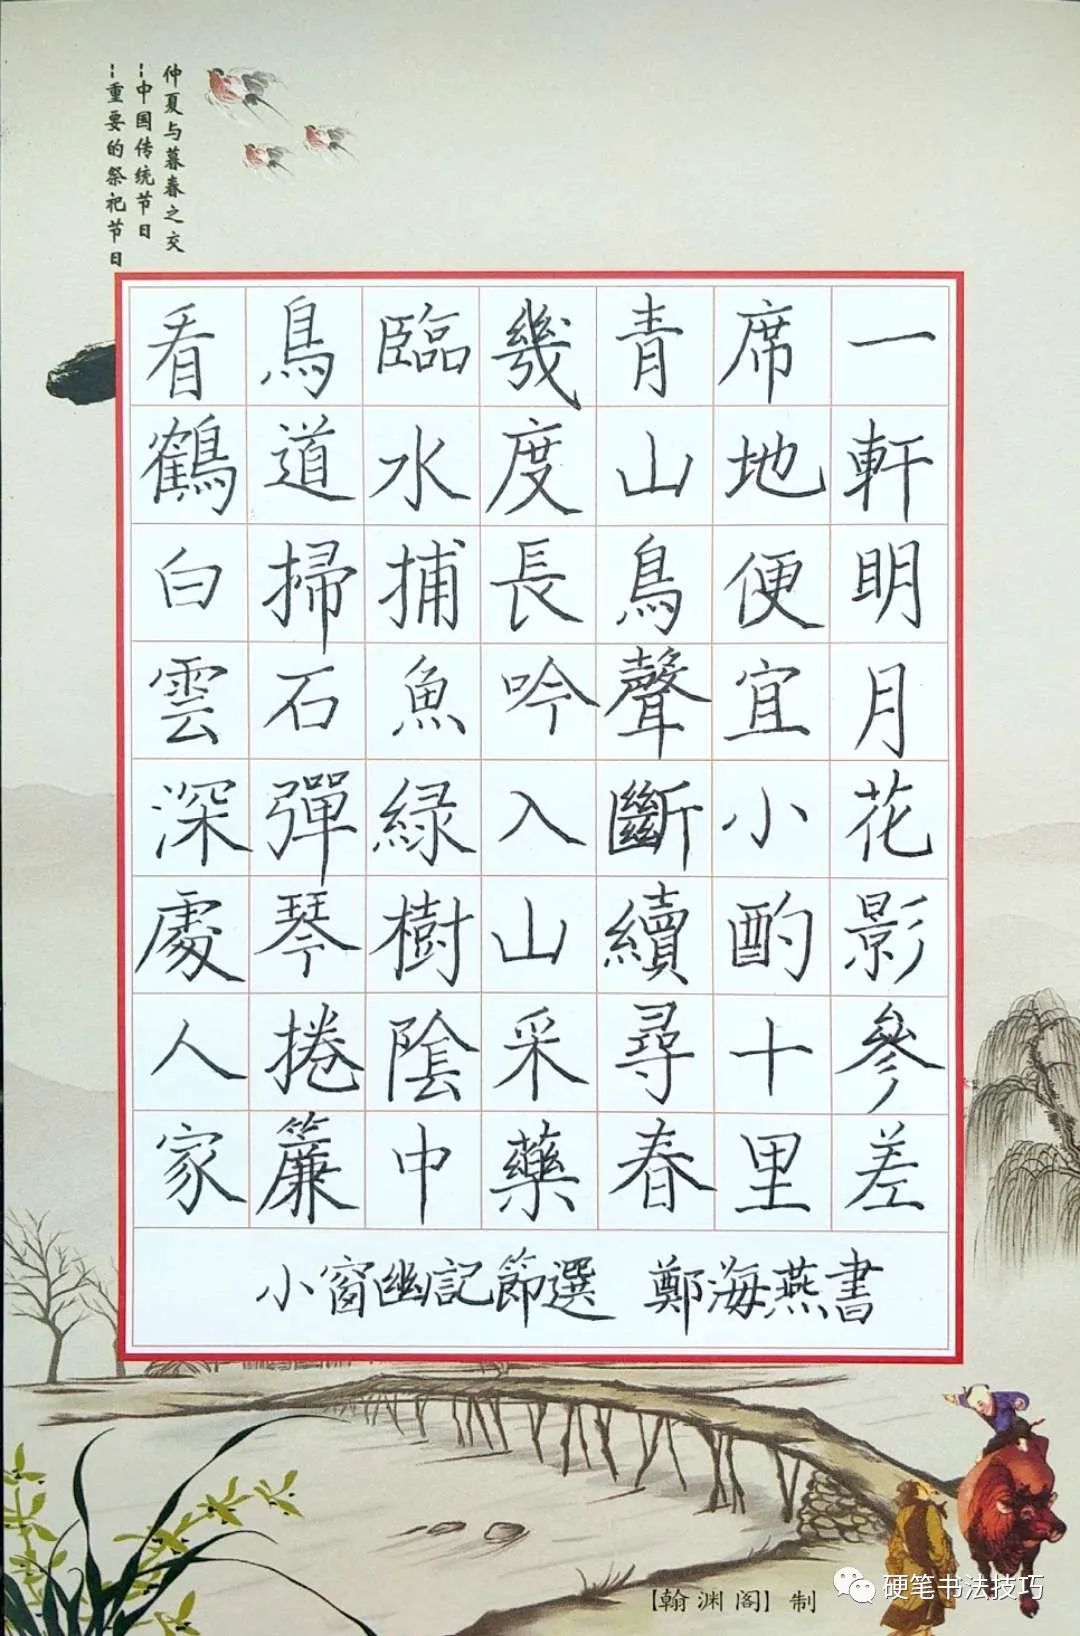 仲夏与暮春之交
--中国传统节日
--重要的祭祀节日
一軒明月花影參差
席地便宜小酌十里
青山鳥聲斷續尋春
幾度長吟入山采藥
臨水捕魚緑樹陰中
鳥道掃石彈琴捲簾
看鶴白雲深處人家
小窗幽記節選 鄭海燕書
【翰渊阁】制
硬笔书法技巧